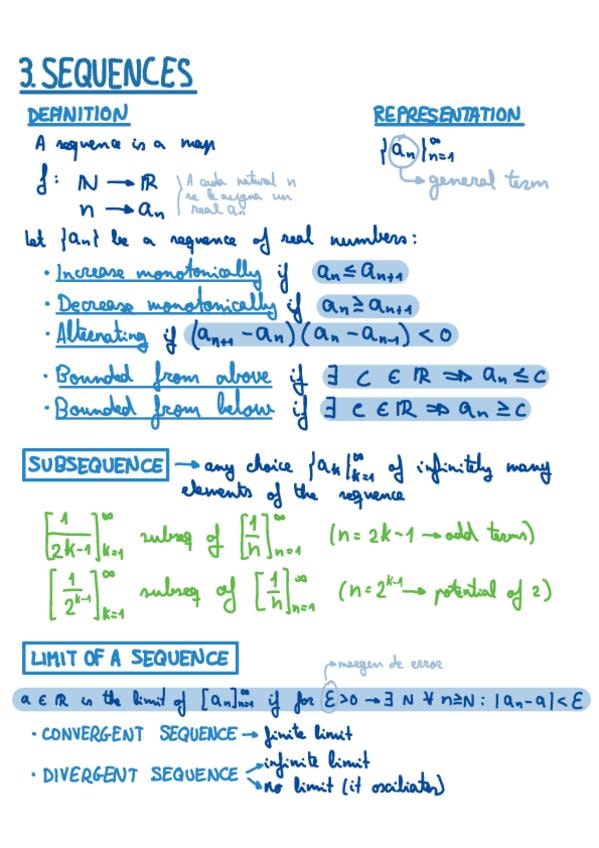 3. SEQUENCES
DEFINITION
REPRESENTATION
A sequence is a map
{an}∞n=1
general term
f: N → R
n → an
A cada natural n
se le asigna un
real an
let {an} be a sequence of real numbers:
· Increase monotonically if an ≤ an+1
· Decrease monotonically if an ≥ an+1
· Alternating if (an+1 - an)(an - an-1) < 0
· Bounded from above if ∃ c ∈ R ⇒ an ≤ c
· Bounded from below if ∃ c ∈ R ⇒ an ≥ c
SUBSEQUENCE → any choice {ak}∞k=1 of infinitely many
elements of the sequence
[1/2k-1]∞k=1 subseq of [1/n]∞n=1 (n = 2k-1 → odd terms)
[1/2^k-1]∞k=1 subseq of [1/n]∞n=1 (n = 2^k-1 → potential of 2)
LIMIT OF A SEQUENCE
margen de error
a ∈ R is the limit of [an]∞n=1 if for ε>0 → ∃ N ∀ n≥N : |an-a| < ε
· CONVERGENT SEQUENCE → finite limit
· DIVERGENT SEQUENCE → infinite limit
→ no limit (it oscillates)